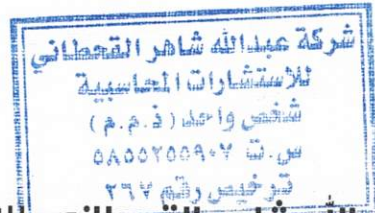 شركة عبدالله شاهر القحطاني
للاستشارات المحاسبية
شخص واحد (ذ.م.م)
س.ت ٥٨٥٥٣٥٥٩٠٧
ترخيص رقم ٢٦٧
القحطاني